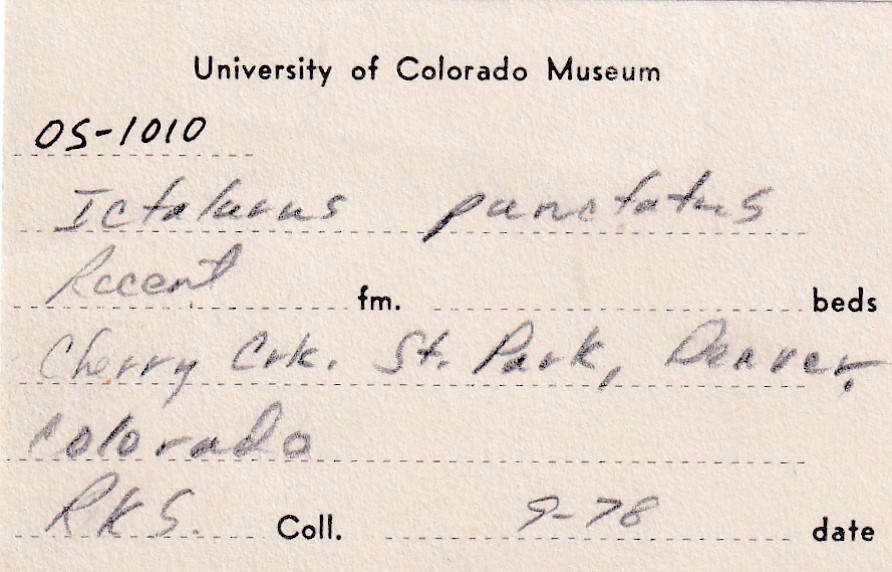 University of Colorado Museum
OS-1010
Ictalurus punctatus
Recent fm. beds
Cherry Crk. St. Park, Denver,
Colorado
RKS. Coll. 9-78 date